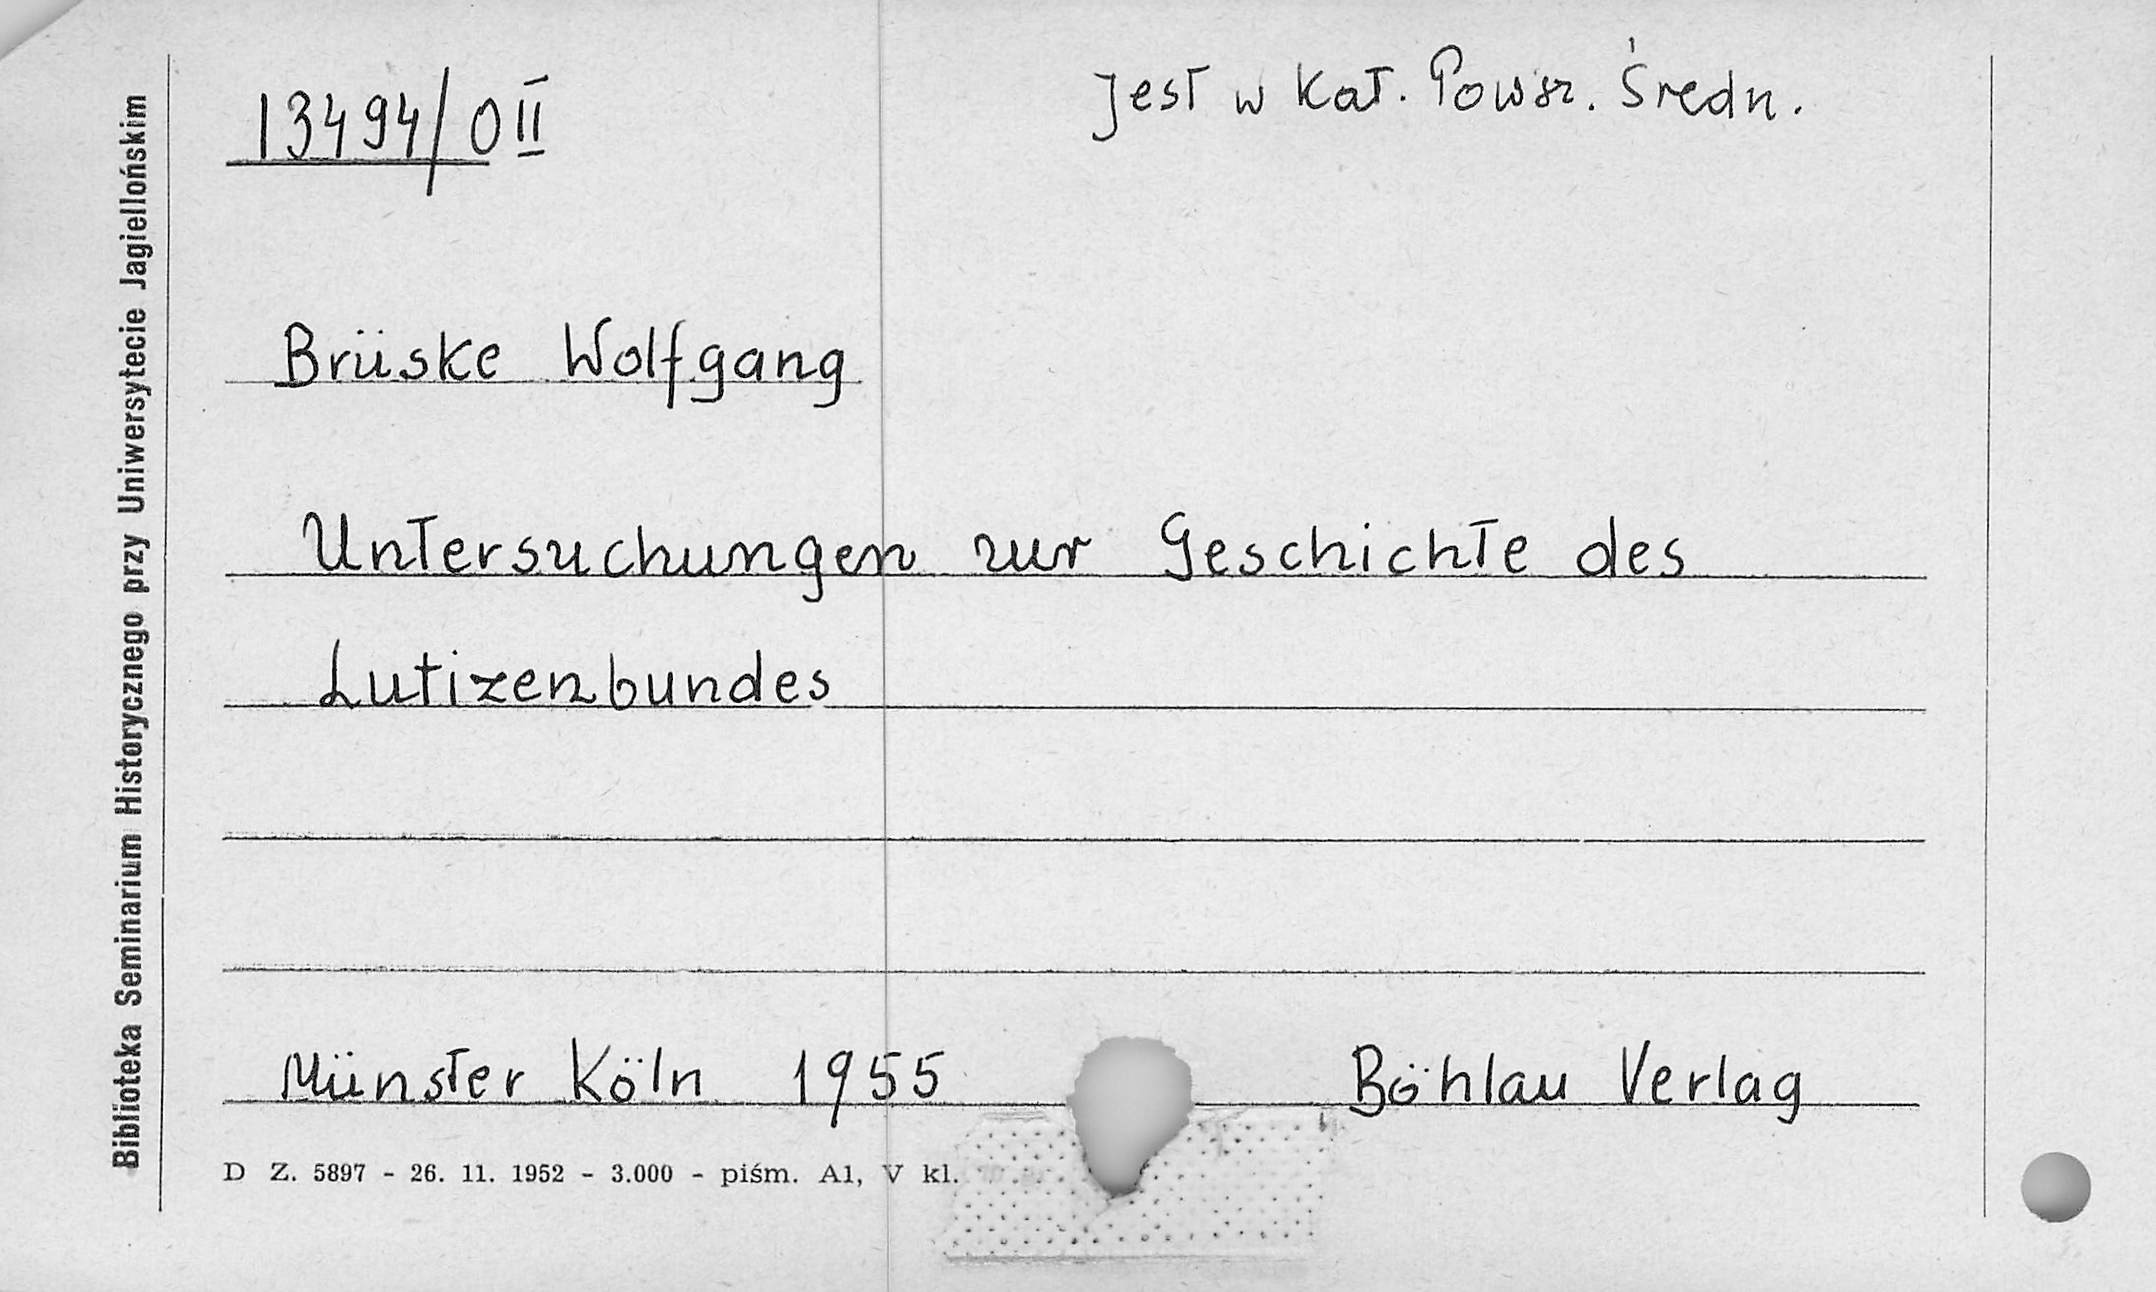 13494/0 II
Jest w Kat. Powsz. Średn.
Brüske Wolfgang
Untersuchungen zur Geschichte des
Lutizenbundes
Münster Köln 1955 Böhlau Verlag
D Z. 5897 - 26. 11. 1952 - 3.000 - piśm. A1, V kl.
Biblioteka Seminarium Historycznego przy Uniwersytecie Jagiellońskim